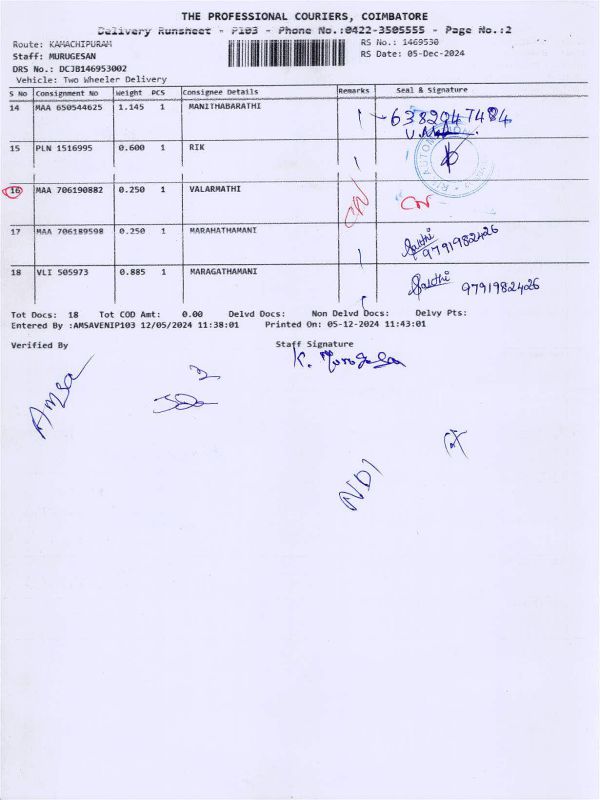 THE PROFESSIONAL COURIERS, COIMBATORE
Delivery Runsheet - P103 - Phone No.:0422-3505555 - Page No.:2
Route: KAMACHIPURAM RS No.: 1469530
Staff: MURUGESAN RS Date: 05-Dec-2024
DRS No.: DCJB146953002
Vehicle: Two Wheeler Delivery
S No Consignment No Weight PCS Consignee Details Remarks Seal & Signature
14 MAA 650544625 1.145 1 MANITHABARATHI 6382047484
15 PLN 1516995 0.600 1 RIK
16 MAA 706190882 0.250 1 VALARMATHI CN CN
17 MAA 706189598 0.250 1 MARAHATHAMANI 9791982426
18 VLI 505973 0.885 1 MARAGATHAMANI 9791982426
Tot Docs: 18 Tot COD Amt: 0.00 Delvd Docs: Non Delvd Docs: Delvy Pts:
Entered By :AMSAVENIP103 12/05/2024 11:38:01 Printed On: 05-12-2024 11:43:01
Verified By Staff Signature
Amsa